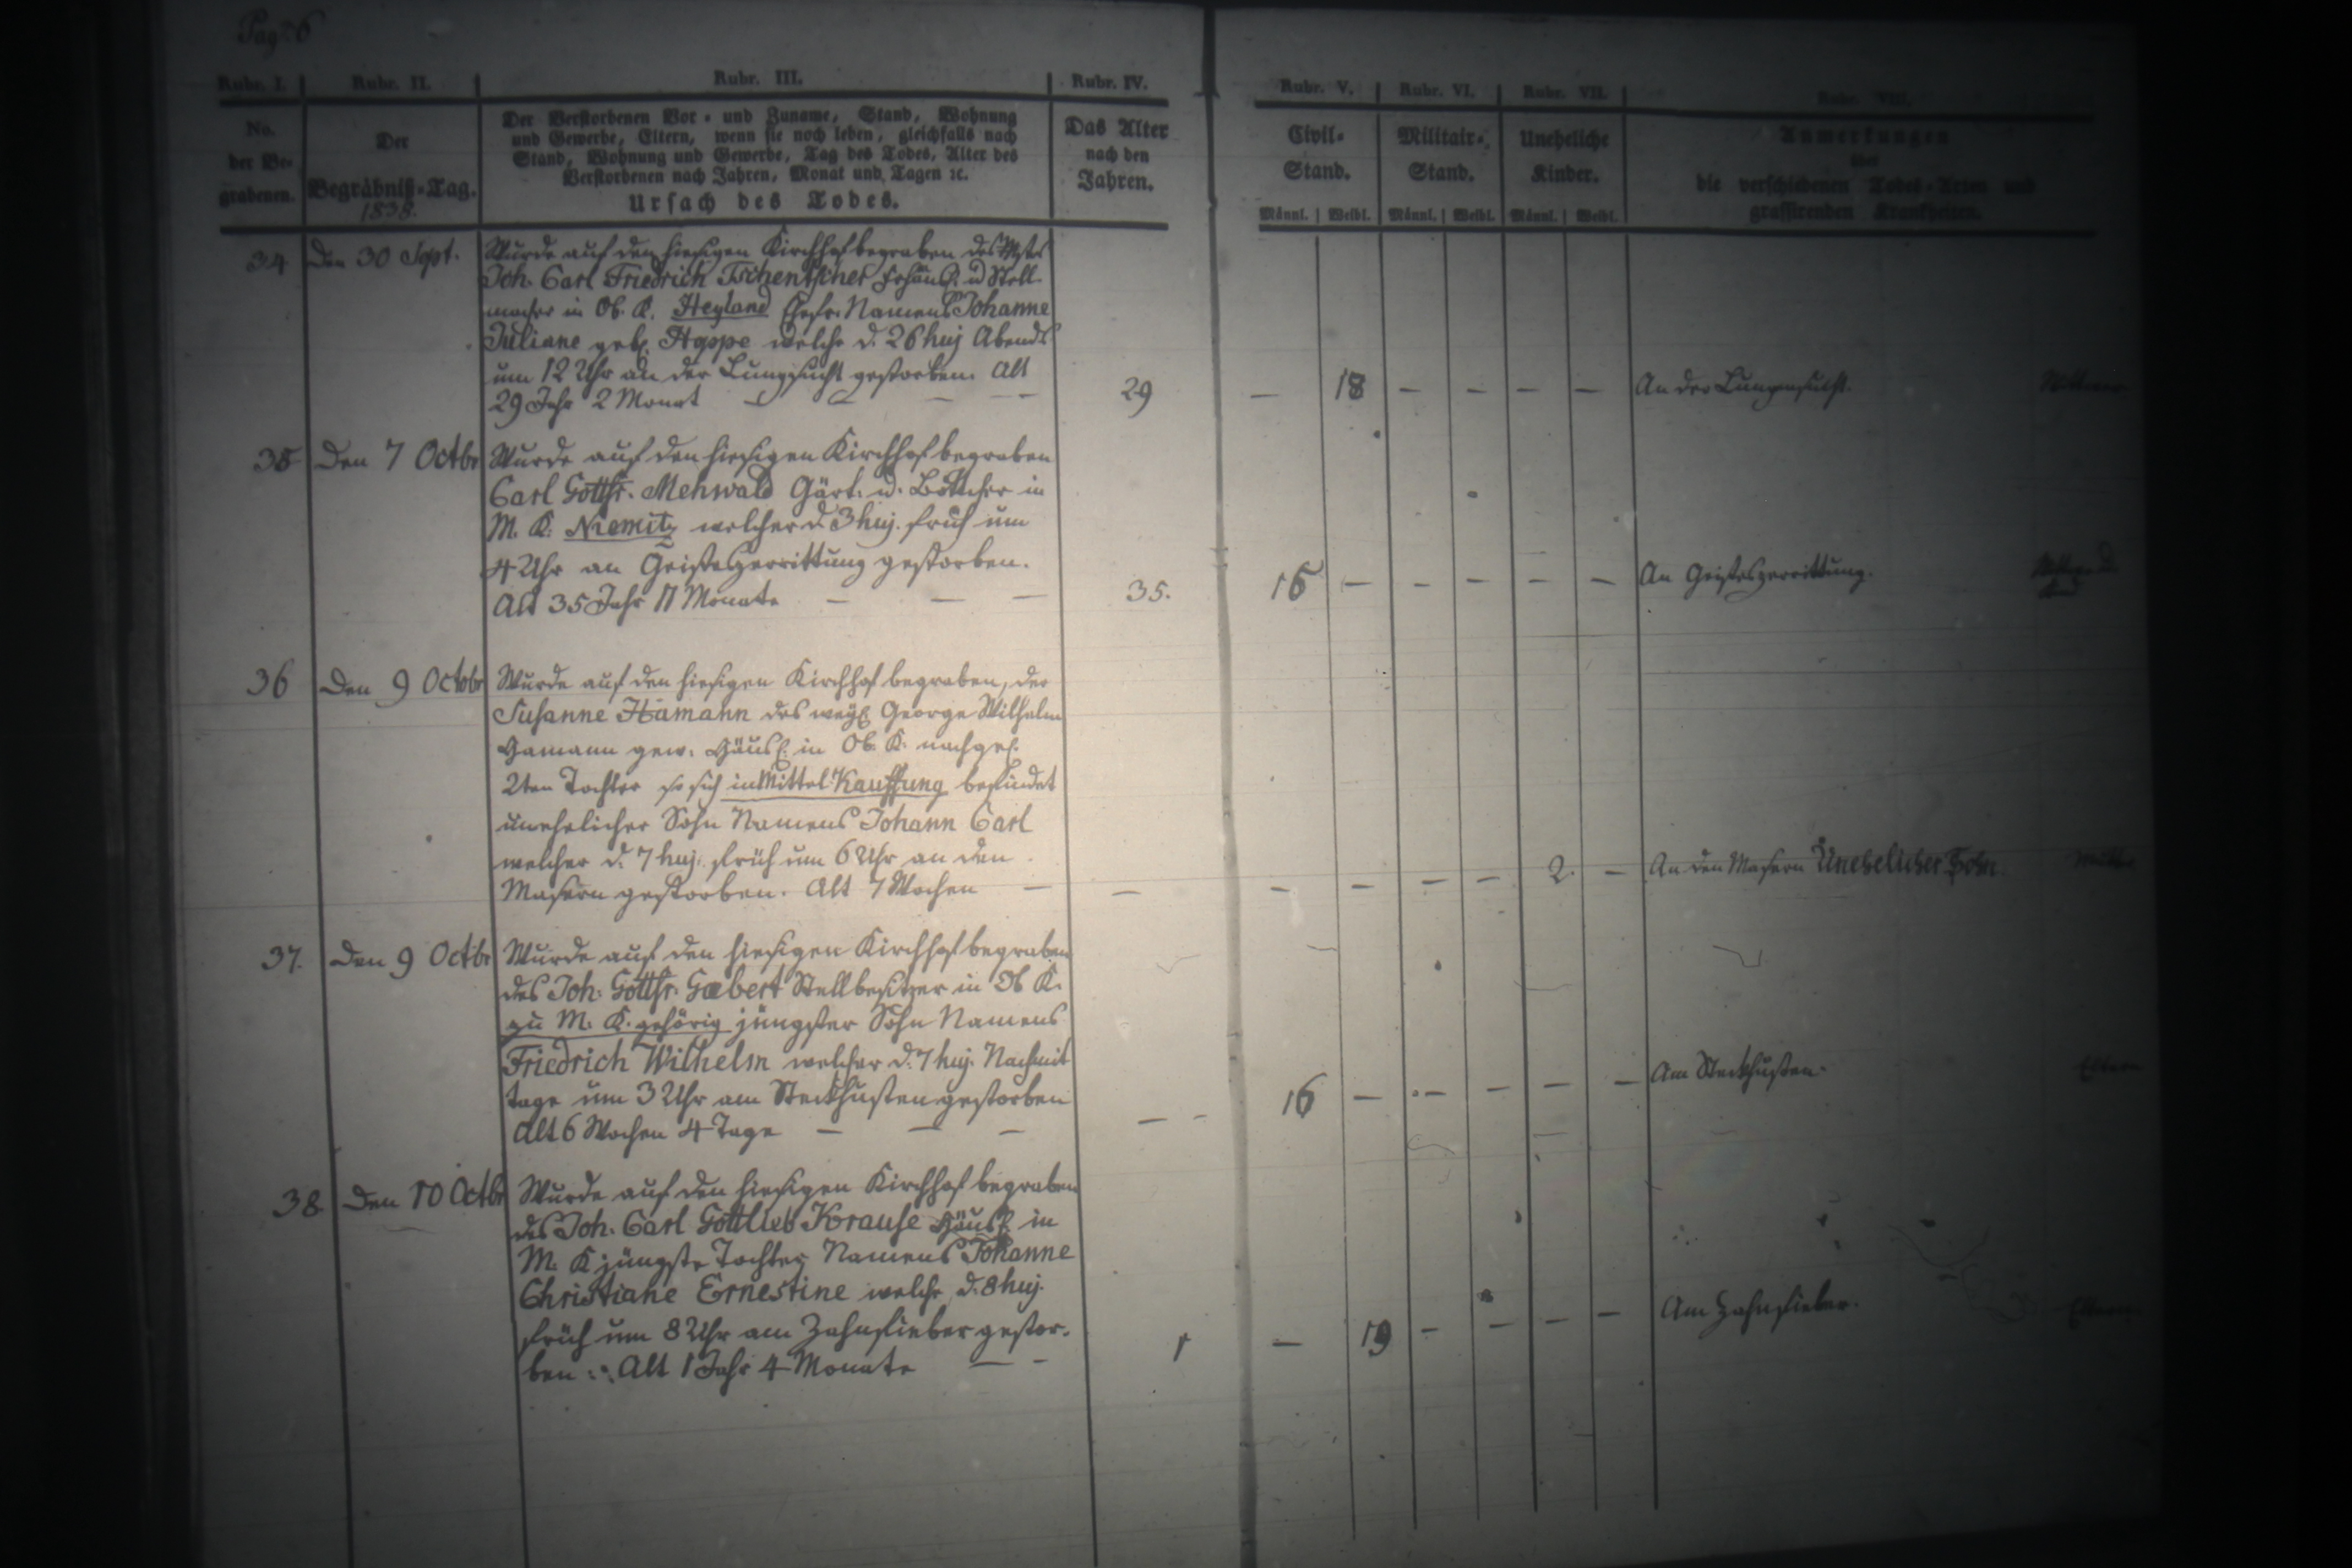 Pag. 6
Rubr. I. Rubr. II. Rubr. III. Rubr. IV. Rubr. V. Rubr. VI. Rubr. VII. Rubr. VIII.
No. der Be- grabenen.
Der Begräbniß-Tag. 1838.
Der Verstorbenen Vor- und Zuname, Stand, Wohnung
und Gewerbe, Eltern, wenn sie noch leben, gleichfalls nach
Stand, Wohnung und Gewerbe, Tag des Todes, Alter des
Verstorbenen nach Jahren, Monat und Tagen ꝛc.
Ursach des Todes.
Das Alter
nach den
Jahren.
Civil-
Stand.
Männl. Weibl.
Militair-
Stand.
Männl. Weibl.
Uneheliche
Kinder.
Männl. Weibl.
Anmerkungen
über
die verschiedenen Todes-Arten und
grassirenden Krankheiten.
34 Den 30 Sept. Wurde auf den hiesigen Kirchhof begraben des Mstr
Joh. Carl Friedrich Tschentscher Frhäusl. u Stell-
macher in Ob. K. Heyland Ehefr. Namens Johanne
Juliane geb. Hoppe welche d. 26 huj Abends
um 12 Uhr an der Lungsucht gestorben. Alt
29 Jahr 2 Monat — — — 29 — 18 — — — — An der Lungensucht. Wittwer
35 Den 7 Octbr Wurde auf den hiesigen Kirchhof begraben
Carl Gottfr. Mehwald Gärt. u. Böttcher in
M. K. Niemitz welcher d. 3 huj. früh um
4 Uhr an Geisteszerrittung gestorben.
Alt 35 Jahr 11 Monate — — — 35. 15 — — — — — An Geisteszerrittung.
36 Den 9 Octobr Wurde auf den hiesigen Kirchhof begraben, der
Susanne Hamann des weyl. George Wilhelm
Hamann gew. Häusl. in Ob. K. nachgel.
2ten Tochter so sich in Mittel Kauffung befindet
unehelicher Sohn Namens Johann Carl
welcher d. 7 huj. früh um 6 Uhr an den
Masern gestorben. Alt 7 Wochen — — — — — — 2. — An den Masern Unehelicher Sohn. Mutter
37. Den 9 Octbr Wurde auf den hiesigen Kirchhof begraben
des Joh. Gottfr. Gaebert Stellbesitzer in Ob K.
zu M. K. gehörig jüngster Sohn Namens
Friedrich Wilhelm welcher d. 7 huj. Nachmit
tags um 3 Uhr am Steckhusten gestorben
Alt 6 Wochen 4 Tage — — — — 16 — — — — — Am Steckhusten. Eltern
38. Den 10 Octbr Wurde auf den hiesigen Kirchhof begraben
des Joh. Carl Gottlieb Krause Häusl. in
M. K jüngste Tochter Namens Johanne
Christiane Ernestine welche d. 8 huj.
früh um 8 Uhr am Zahnfieber gestor-
ben. Alt 1 Jahr 4 Monate — — 1 — 19 — — — — Am Zahnfieber. Eltern